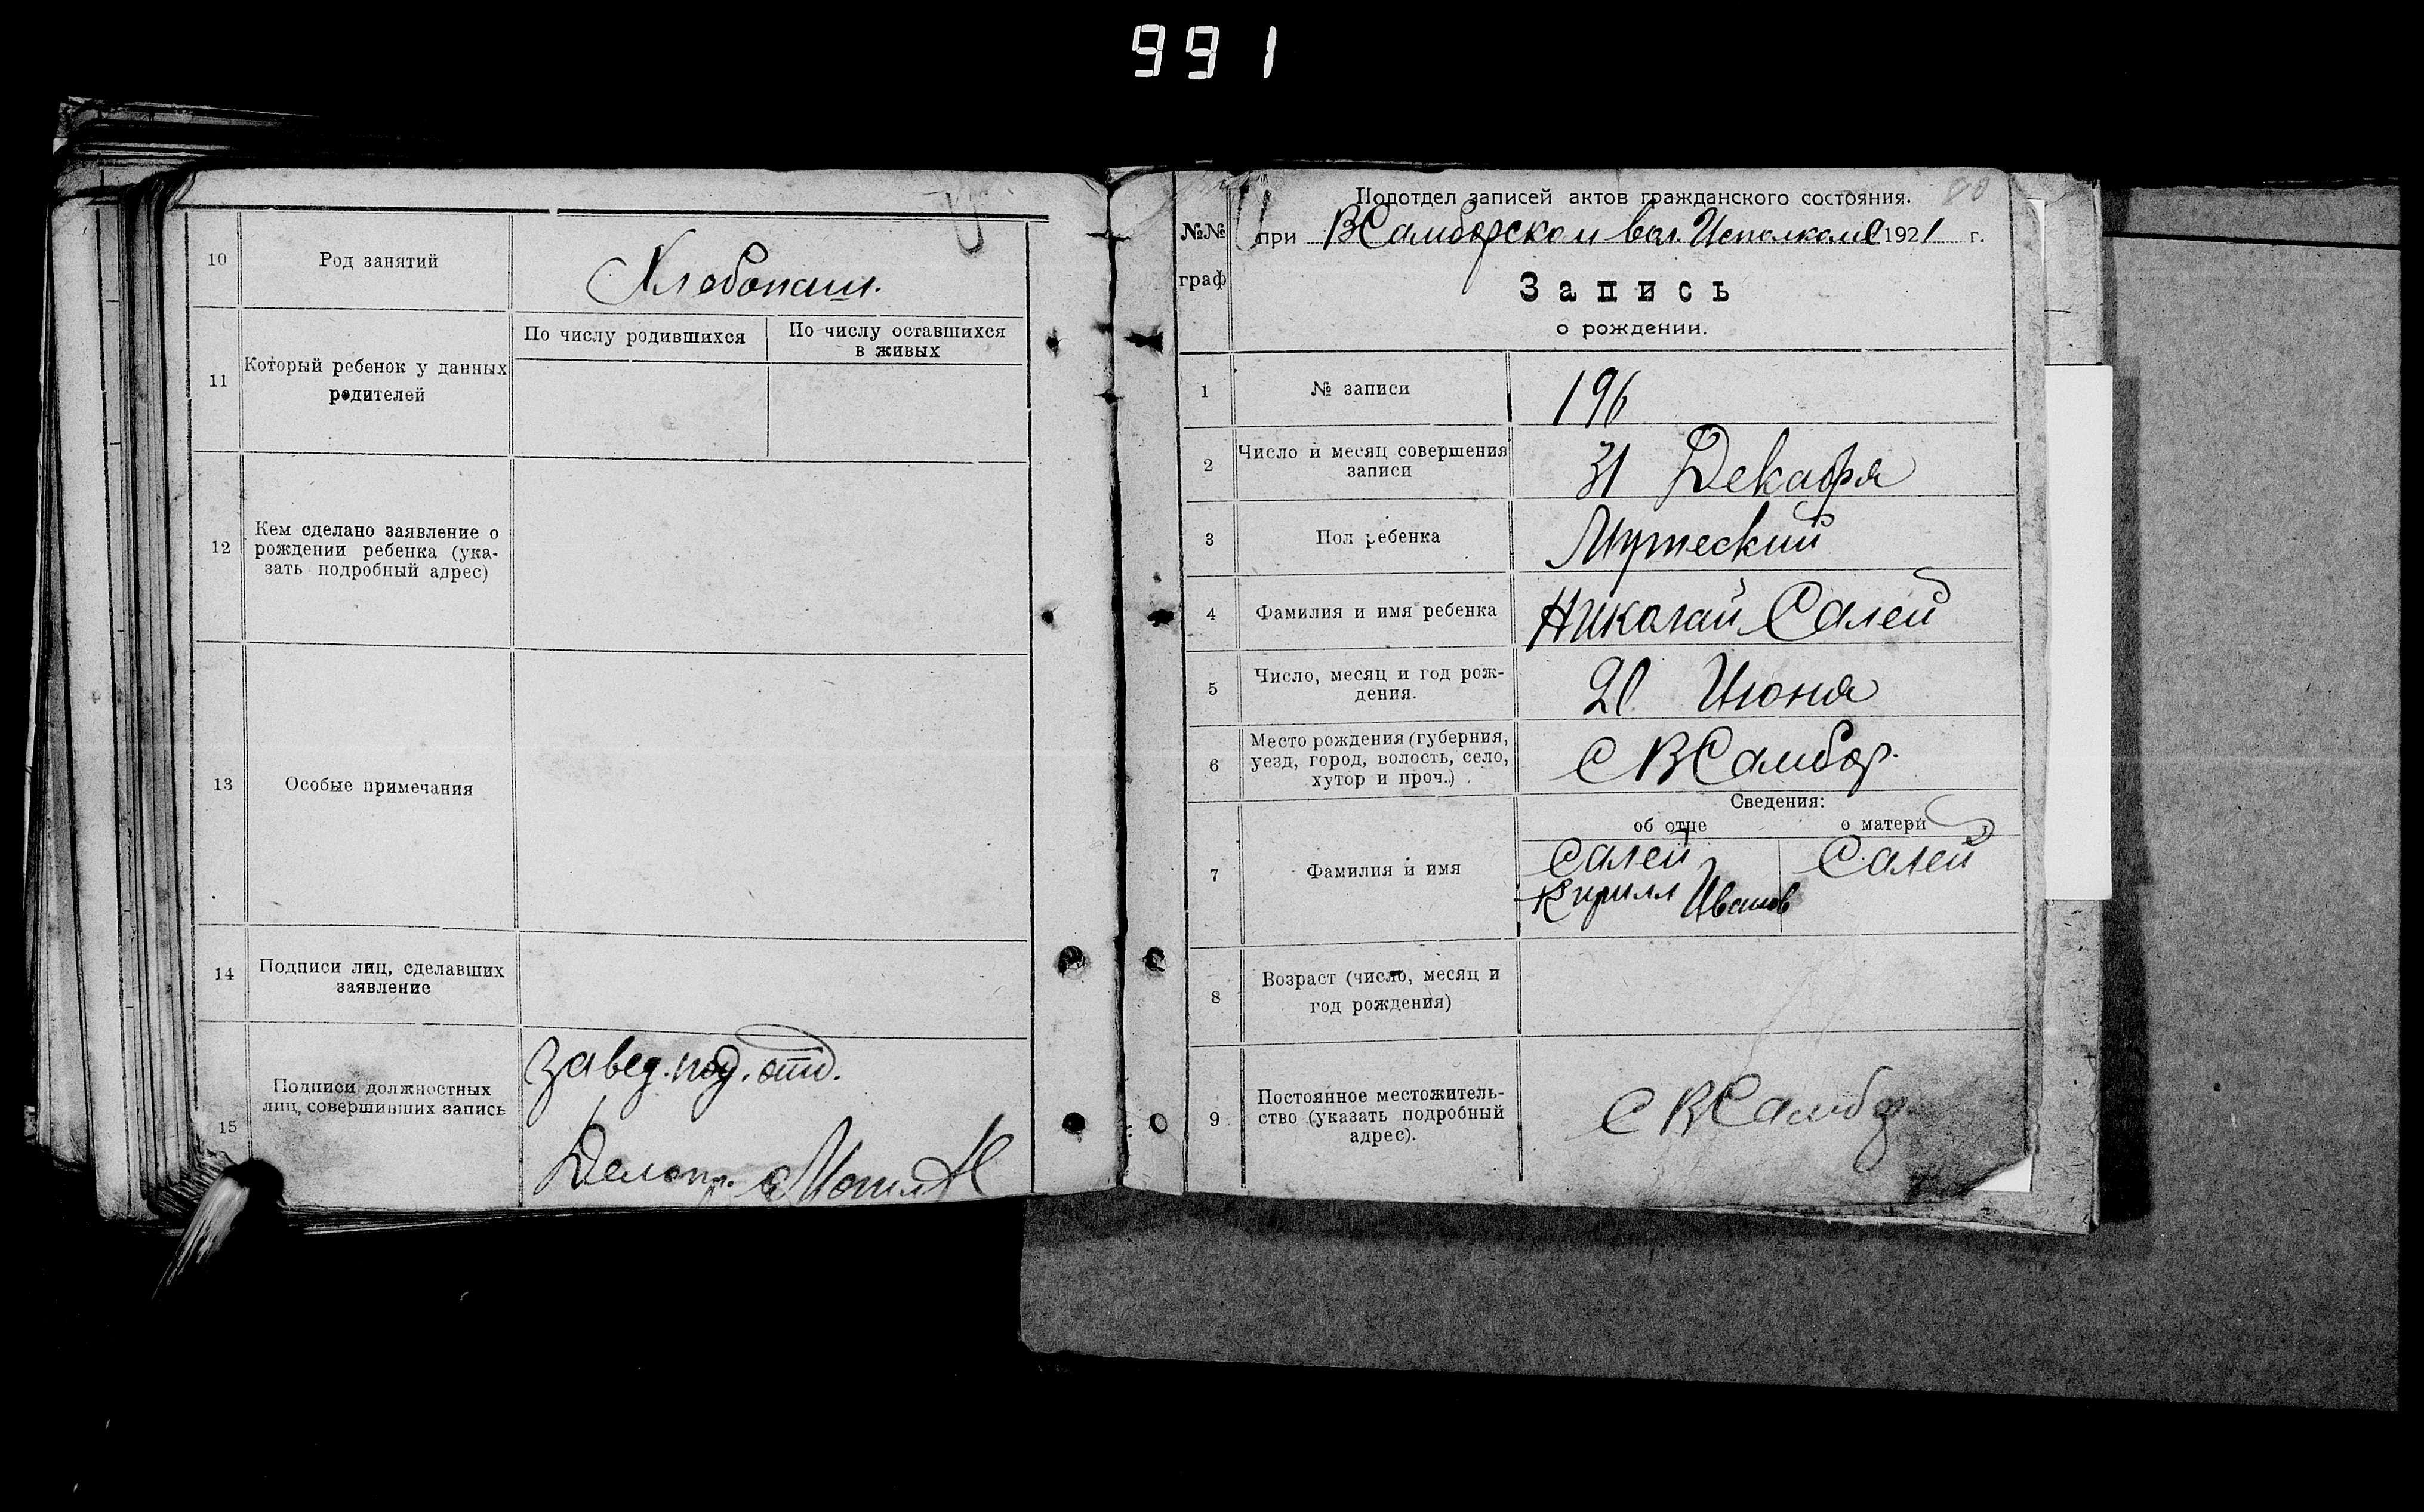 991
10 Род занятий Хлебопаш.
11 Который ребенок у данных родителей
По числу родившихся
По числу оставшихся в живых
12 Кем сделано заявление о
рождении ребенка (ука-
зать подробный адрес)
13 Особые примечания
14 Подписи лиц, сделавших
заявление
15 Подписи должностных
лиц, совершивших запись
Завед. под. отд.
Делопр.
80
Подотдел записей актов гражданского состояния.
№№ граф
при ВСамборском вол. Исполкоме 1921 г.
Запись
о рождении.
1 № записи 196
2 Число и месяц совершения
записи 31 Декабря
3 Пол ребенка Мужеский
4 Фамилия и имя ребенка Николай Салей
5 Число, месяц и год рож-
дения. 20 Июня
6 Место рождения (губерния,
уезд, город, волость, село,
хутор и проч.) С ВСамбор.
Сведения:
об отце о матери
7 Фамилия и имя Салей Салей
Кирилл Иванов
8 Возраст (число, месяц и
год рождения)
9 Постоянное местожитель-
ство (указать подробный
адрес). С ВСамбор